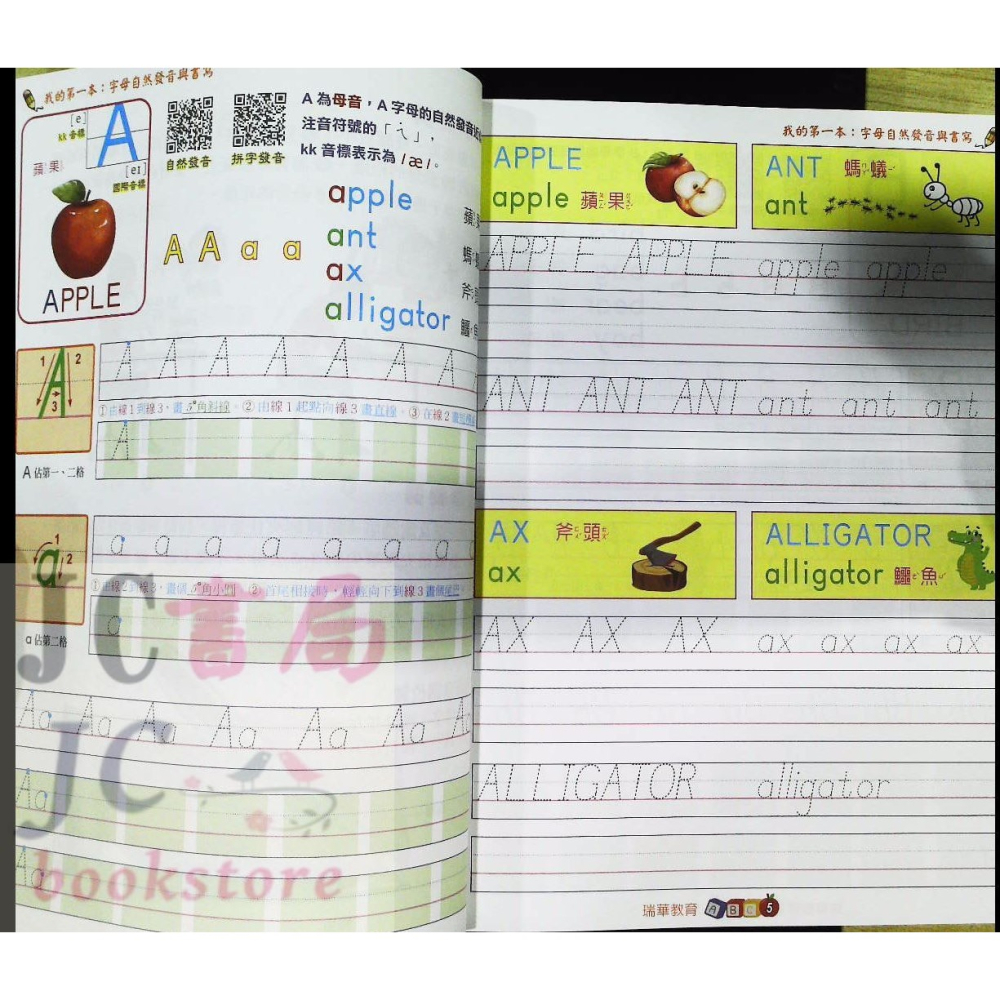 我的第一本：字母自然發音與書寫
[e]
kk 音標
A
蘋果
[eɪ]
國際音標
APPLE
自然發音
拼字發音
A 為母音，A 字母的自然發音
注音符號的「ㄟ」，
kk 音標表示為 /æ/。
A A a a
apple
ant
ax
alligator
1 A 2
3
A 佔第一、二格
A A A A A A A
①由線1到線3，畫 角斜線。②由線1起點向線3畫直線。③在線2
A
1
a 2
a 佔第二格
a a a a a a a a
①由線2到線3，畫個 角小圓 ②首尾相接時，輕輕向下到線3畫個尾巴。
a
Aa Aa Aa Aa Aa Aa A
Aa
Aa
JC書局
JC
bookstore
我的第一本：字母自然發音與書寫
APPLE
apple 蘋果
ANT 螞蟻
ant
APPLE APPLE apple apple
ANT ANT ANT ant ant ant
AX 斧頭
ax
ALLIGATOR
alligator 鱷魚
AX AX AX ax ax ax ax
ALLIGATOR alligator
瑞華教育 A B C 5